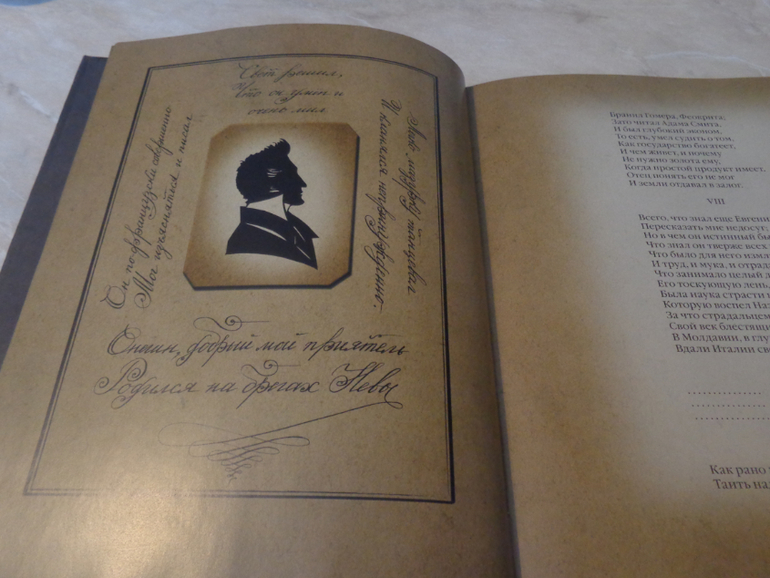 Свет решил,
Что он умен и
очень мил
Он по-французски совершенно
Мог изъясняться и писал
Легко мазурку танцевал
И кланялся непринужденно;
Онегин, добрый мой приятель
Родился на брегах Невы
Бранил Гомера, Феокрита;
Зато читал Адама Смита,
И был глубокий эконом,
То есть, умел судить о том,
Как государство богатеет,
И чем живет, и почему
Не нужно золота ему,
Когда простой продукт имеет.
Отец понять его не мог
И земли отдавал в залог.
VIII
Всего, что знал еще Евгени
Пересказать мне недосуг;
Но в чем он истинный бы
Что знал он тверже всех
Что было для него измл
И труд, и мука, и отрад
Что занимало целый д
Его тоскующую лень,
Была наука страсти н
Которую воспел Наз
За что страдальцем
Свой век блестящи
В Молдавии, в глу
Вдали Италии св
Как рано
Таить на